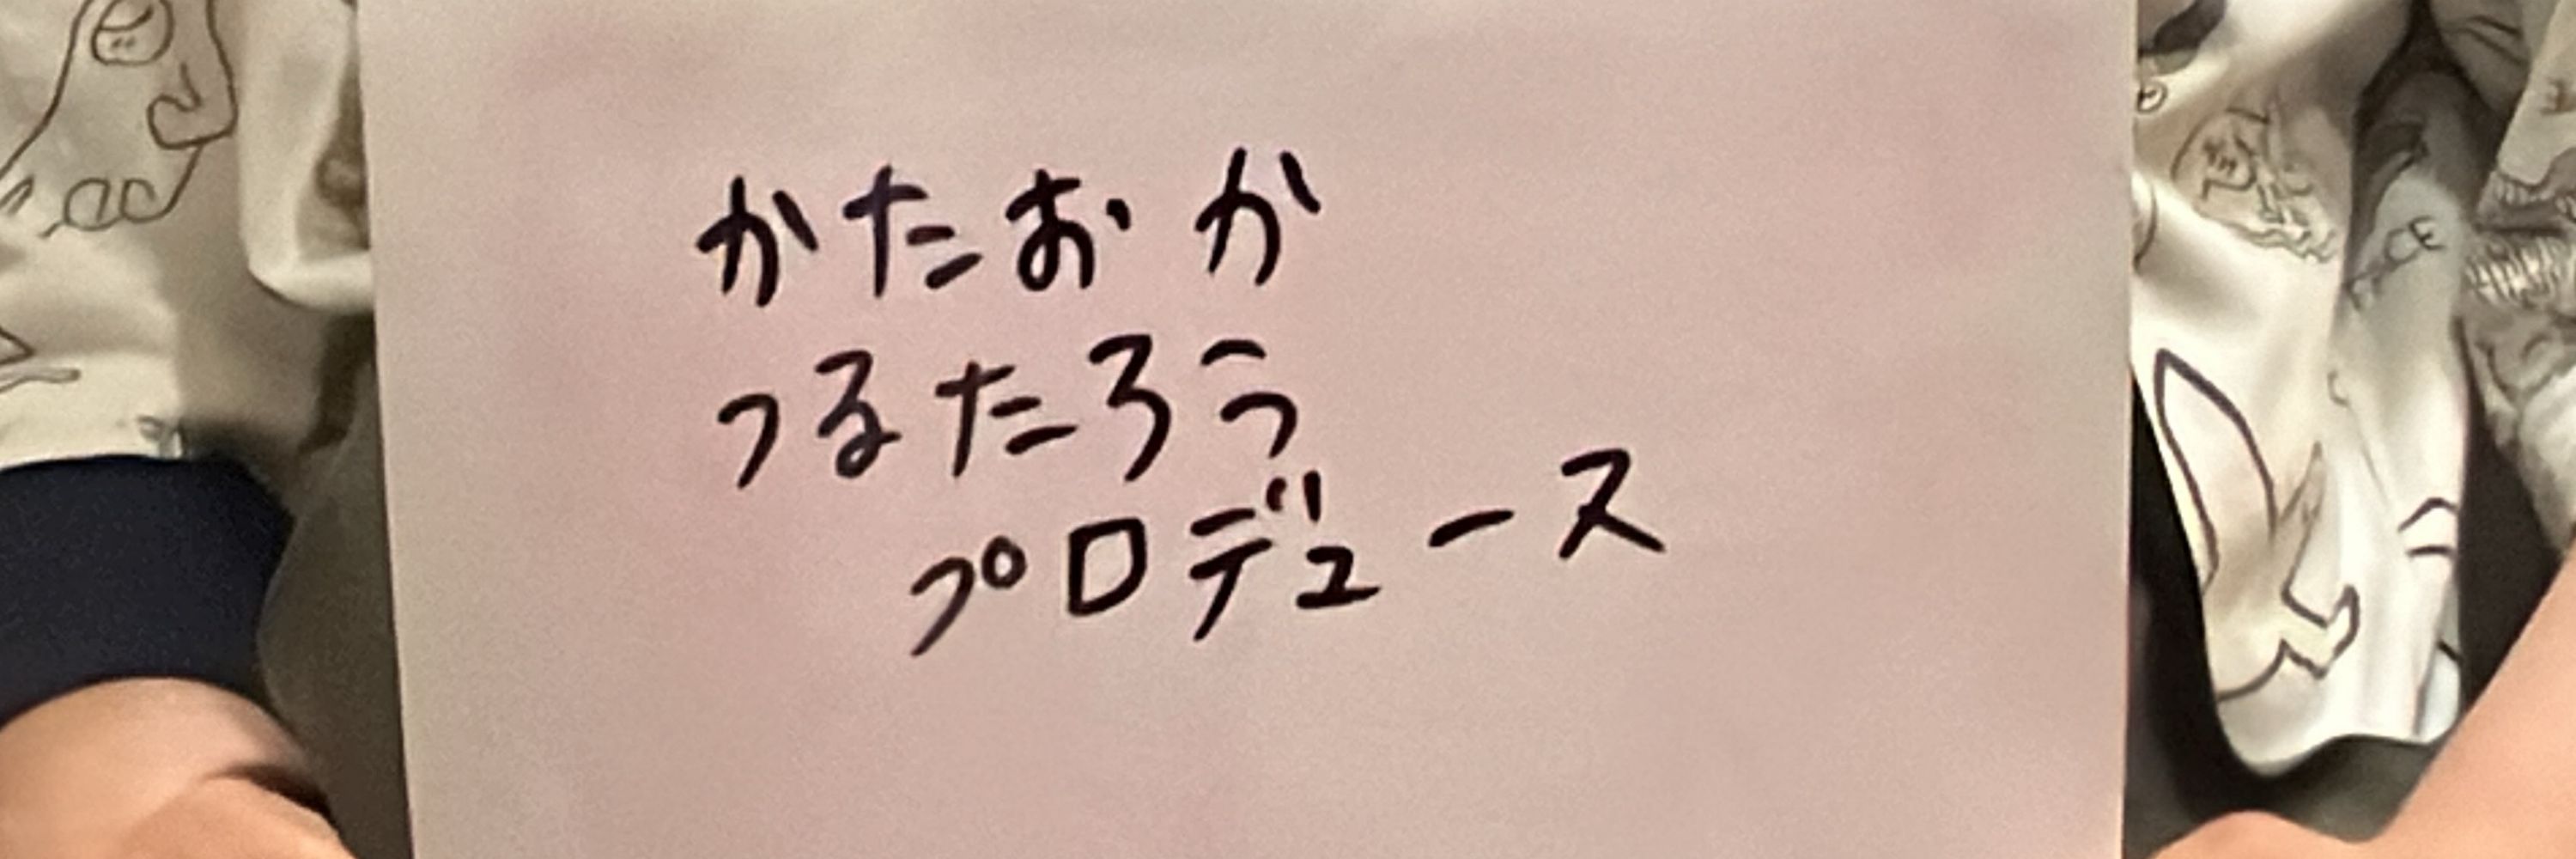 かたおか
つるたろう
プロデュース